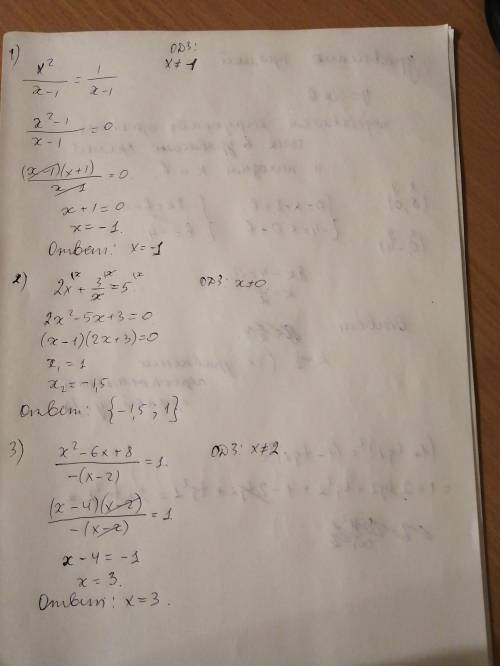 1)
ОДЗ:
x ≠ 1
x²/(x-1) = 1/(x-1)
(x²-1)/(x-1) = 0
(x-1)(x+1)/(x-1) = 0
x+1=0
x=-1.
Ответ: x=-1
2)
2x + 3/x = 5
ОДЗ: x≠0
2x²-5x+3=0
(x-1)(2x+3)=0
x₁=1
x₂=-1,5
Ответ: {-1,5; 1}
3)
(x²-6x+8)/(-(x-2)) = 1.
ОДЗ: x≠2
(x-4)(x-2)/(-(x-2)) = 1
x-4=-1
x=3.
Ответ: x=3.